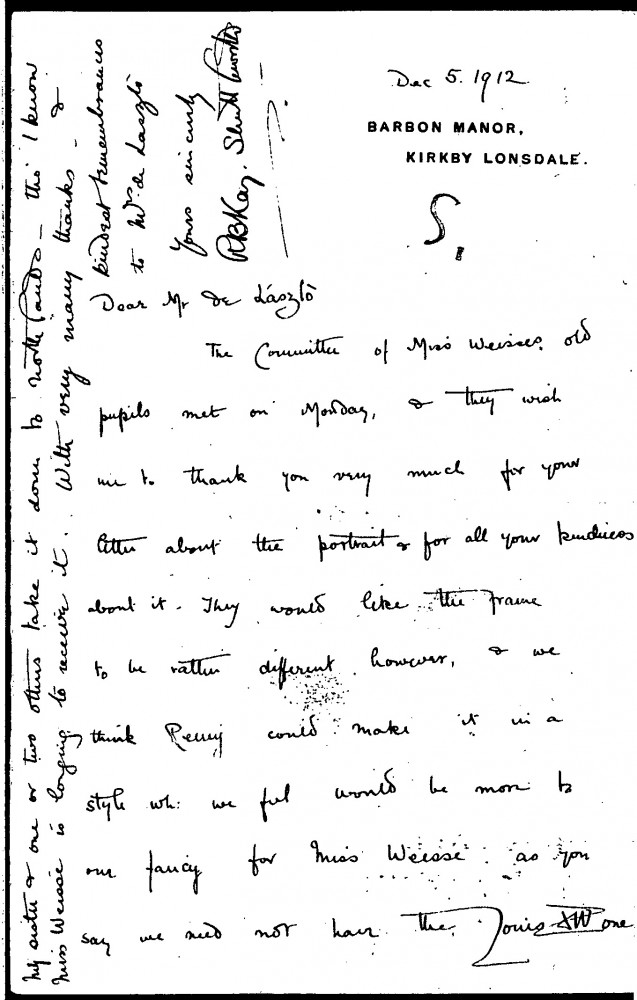 Dec 5. 1912
BARBON MANOR,
KIRKBY LONSDALE.
S.
Dear Mr de László
The Committee of Miss Weisse's old
pupils met on Monday, & they wish
me to thank you very much for your
letter about the portrait & for all your kindness
about it. They would like the frame
to be rather different however, & we
think Remy could make it in a
style wh: we feel would be more to
our fancy for Miss Weisse. as you
say we need not have the Louis XIV one
My sister & one or two others take it down to Northlands – tho' I know
Miss Weisse is longing to receive it. With very many thanks – &
kindest remembrances
to Mrs de László
Yours sincerely
R B Kay. Shuttleworth